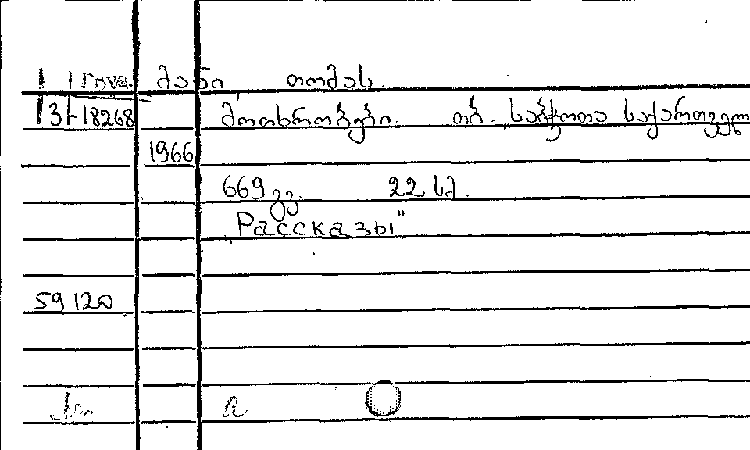 მანი, თომას.
3-18268 მოთხრობები. თბ. საბჭოთა საქართველო
1966
669 გვ. 22 სმ.
"Рассказы"
59120